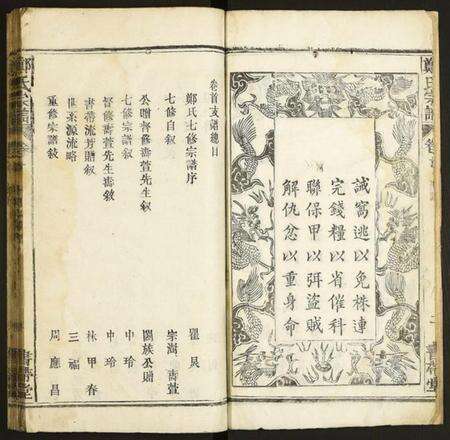 誡窩逃以免株連
完錢糧以省催科
聯保甲以弭盜賊
解仇忿以重身命
鄭氏宗譜
卷首支譜總目
鄭氏七修宗譜序
翟㷗
七修自叙
宗濤 壽萱
公贈督修壽萱先生叙
闔族公贈
七修宗譜叙
中玲
督修壽萱先生壽敘
中玲
書帶流芳贈叙
林甲春
世系源流略
三福
重修宗譜叙
周應昌
鄭氏宗譜
書帶堂